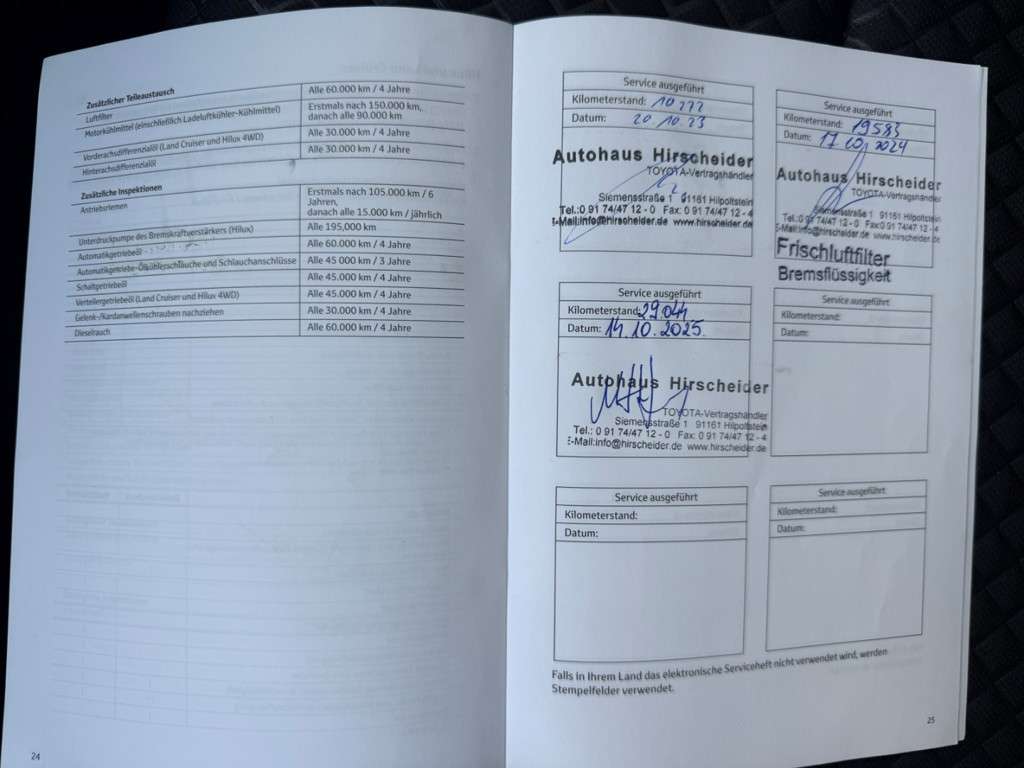 Zusätzlicher Teileaustausch
Luftfilter Alle 60.000 km / 4 Jahre
Motorkühlmittel (einschließlich Ladeluftkühler-Kühlmittel) Erstmals nach 150.000 km,
danach alle 90.000 km
Vorderachsdifferenzialöl (Land Cruiser und Hilux 4WD) Alle 30.000 km / 4 Jahre
Hinterachsdifferenzialöl Alle 30.000 km / 4 Jahre
Zusätzliche Inspektionen
Antriebsriemen Erstmals nach 105.000 km / 6
Jahren,
danach alle 15.000 km / jährlich
Unterdruckpumpe des Bremskraftverstärkers (Hilux) Alle 195,000 km
Automatikgetriebeöl Alle 60.000 km / 4 Jahre
Automatikgetriebe-Ölkühlerschläuche und Schlauchanschlüsse Alle 45 000 km / 3 Jahre
Schaltgetriebeöl Alle 45.000 km / 4 Jahre
Verteilergetriebeöl (Land Cruiser und Hilux 4WD) Alle 45.000 km / 4 Jahre
Gelenk-/Kardanwellenschrauben nachziehen Alle 30.000 km / 4 Jahre
Dieselrauch Alle 60.000 km / 4 Jahre
24
Service ausgeführt
Kilometerstand: 10222
Datum: 20.10.23
Autohaus Hirscheider
TOYOTA-Vertragshändler
Siemensstraße 1 91161 Hilpoltstein
Tel.: 0 91 74/47 12 - 0 Fax: 0 91 74/47 12 - 4
E-Mail:info@hirscheider.de www.hirscheider.de
Service ausgeführt
Kilometerstand: 19583
Datum: 17.10.2024
Autohaus Hirscheider
TOYOTA-Vertragshändler
Siemensstraße 1 91161 Hilpoltstein
Tel.: 0 91 74/47 12 - 0 Fax: 0 91 74/47 12 - 4
E-Mail:info@hirscheider.de www.hirscheider.de
Frischluftfilter
Bremsflüssigkeit
Service ausgeführt
Kilometerstand: 29.044
Datum: 14.10.2025
Autohaus Hirscheider
TOYOTA-Vertragshändler
Siemensstraße 1 91161 Hilpoltstein
Tel.: 0 91 74/47 12 - 0 Fax: 0 91 74/47 12 - 4
E-Mail:info@hirscheider.de www.hirscheider.de
Service ausgeführt
Kilometerstand:
Datum:
Service ausgeführt
Kilometerstand:
Datum:
Service ausgeführt
Kilometerstand:
Datum:
Falls in Ihrem Land das elektronische Serviceheft nicht verwendet wird, werden
Stempelfelder verwendet.
25